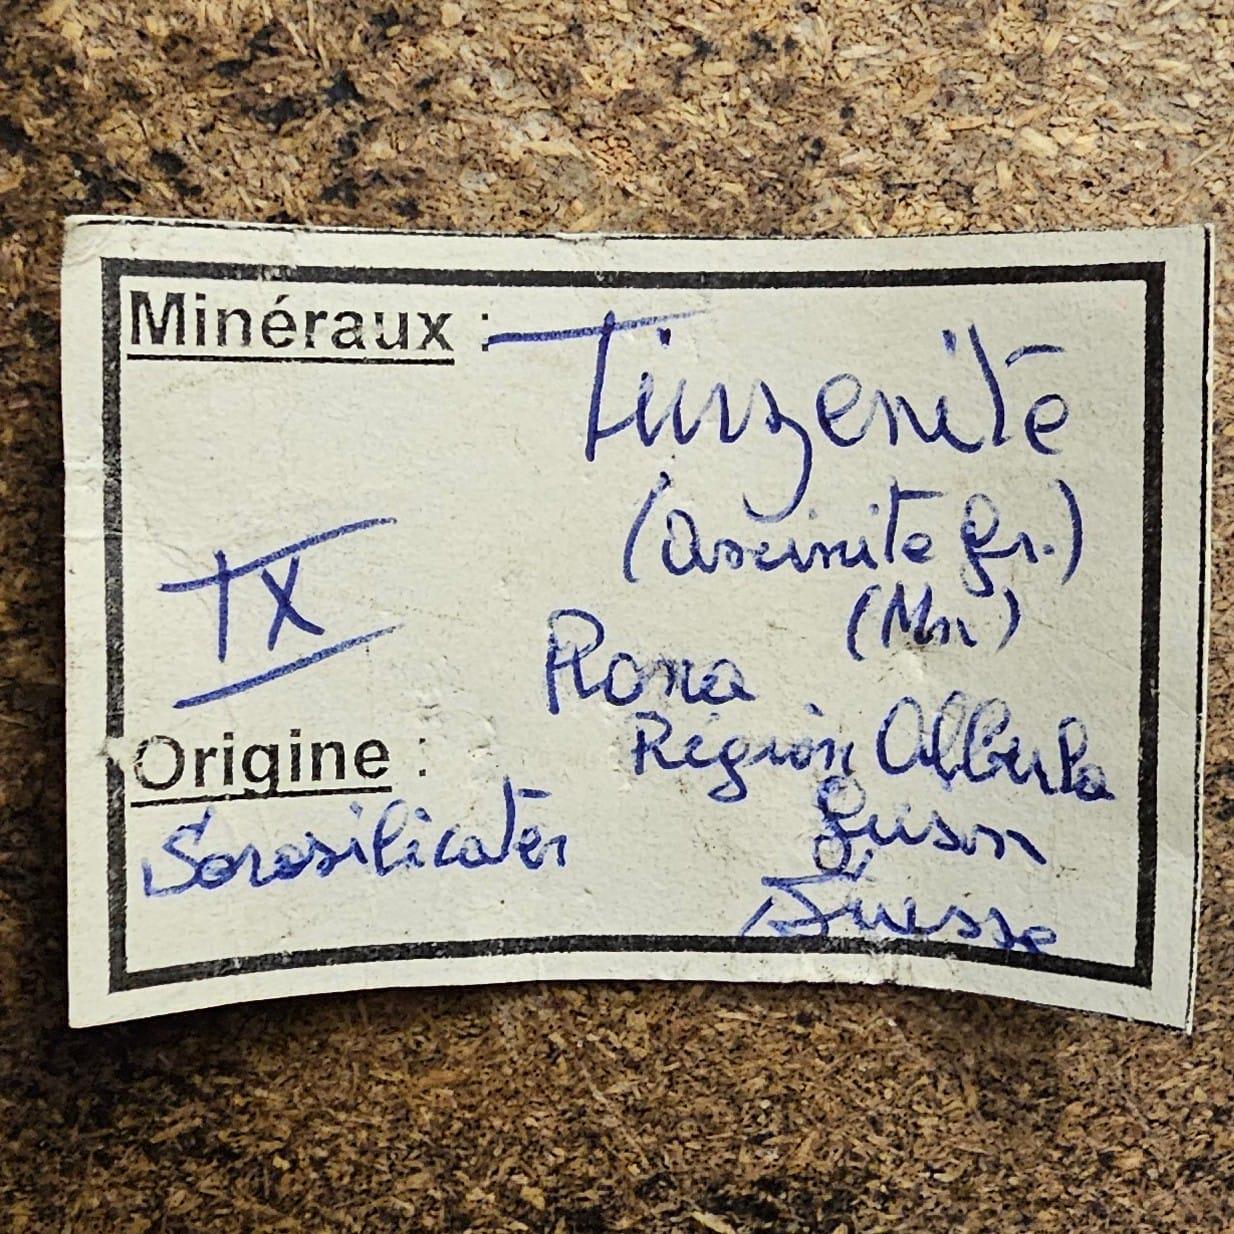 Minéraux : Tinzenite
(Axinite Gr.)
(Mn)
TX
Rona
Région Albula
Origine :
Grison
Sorosilicates
Suisse